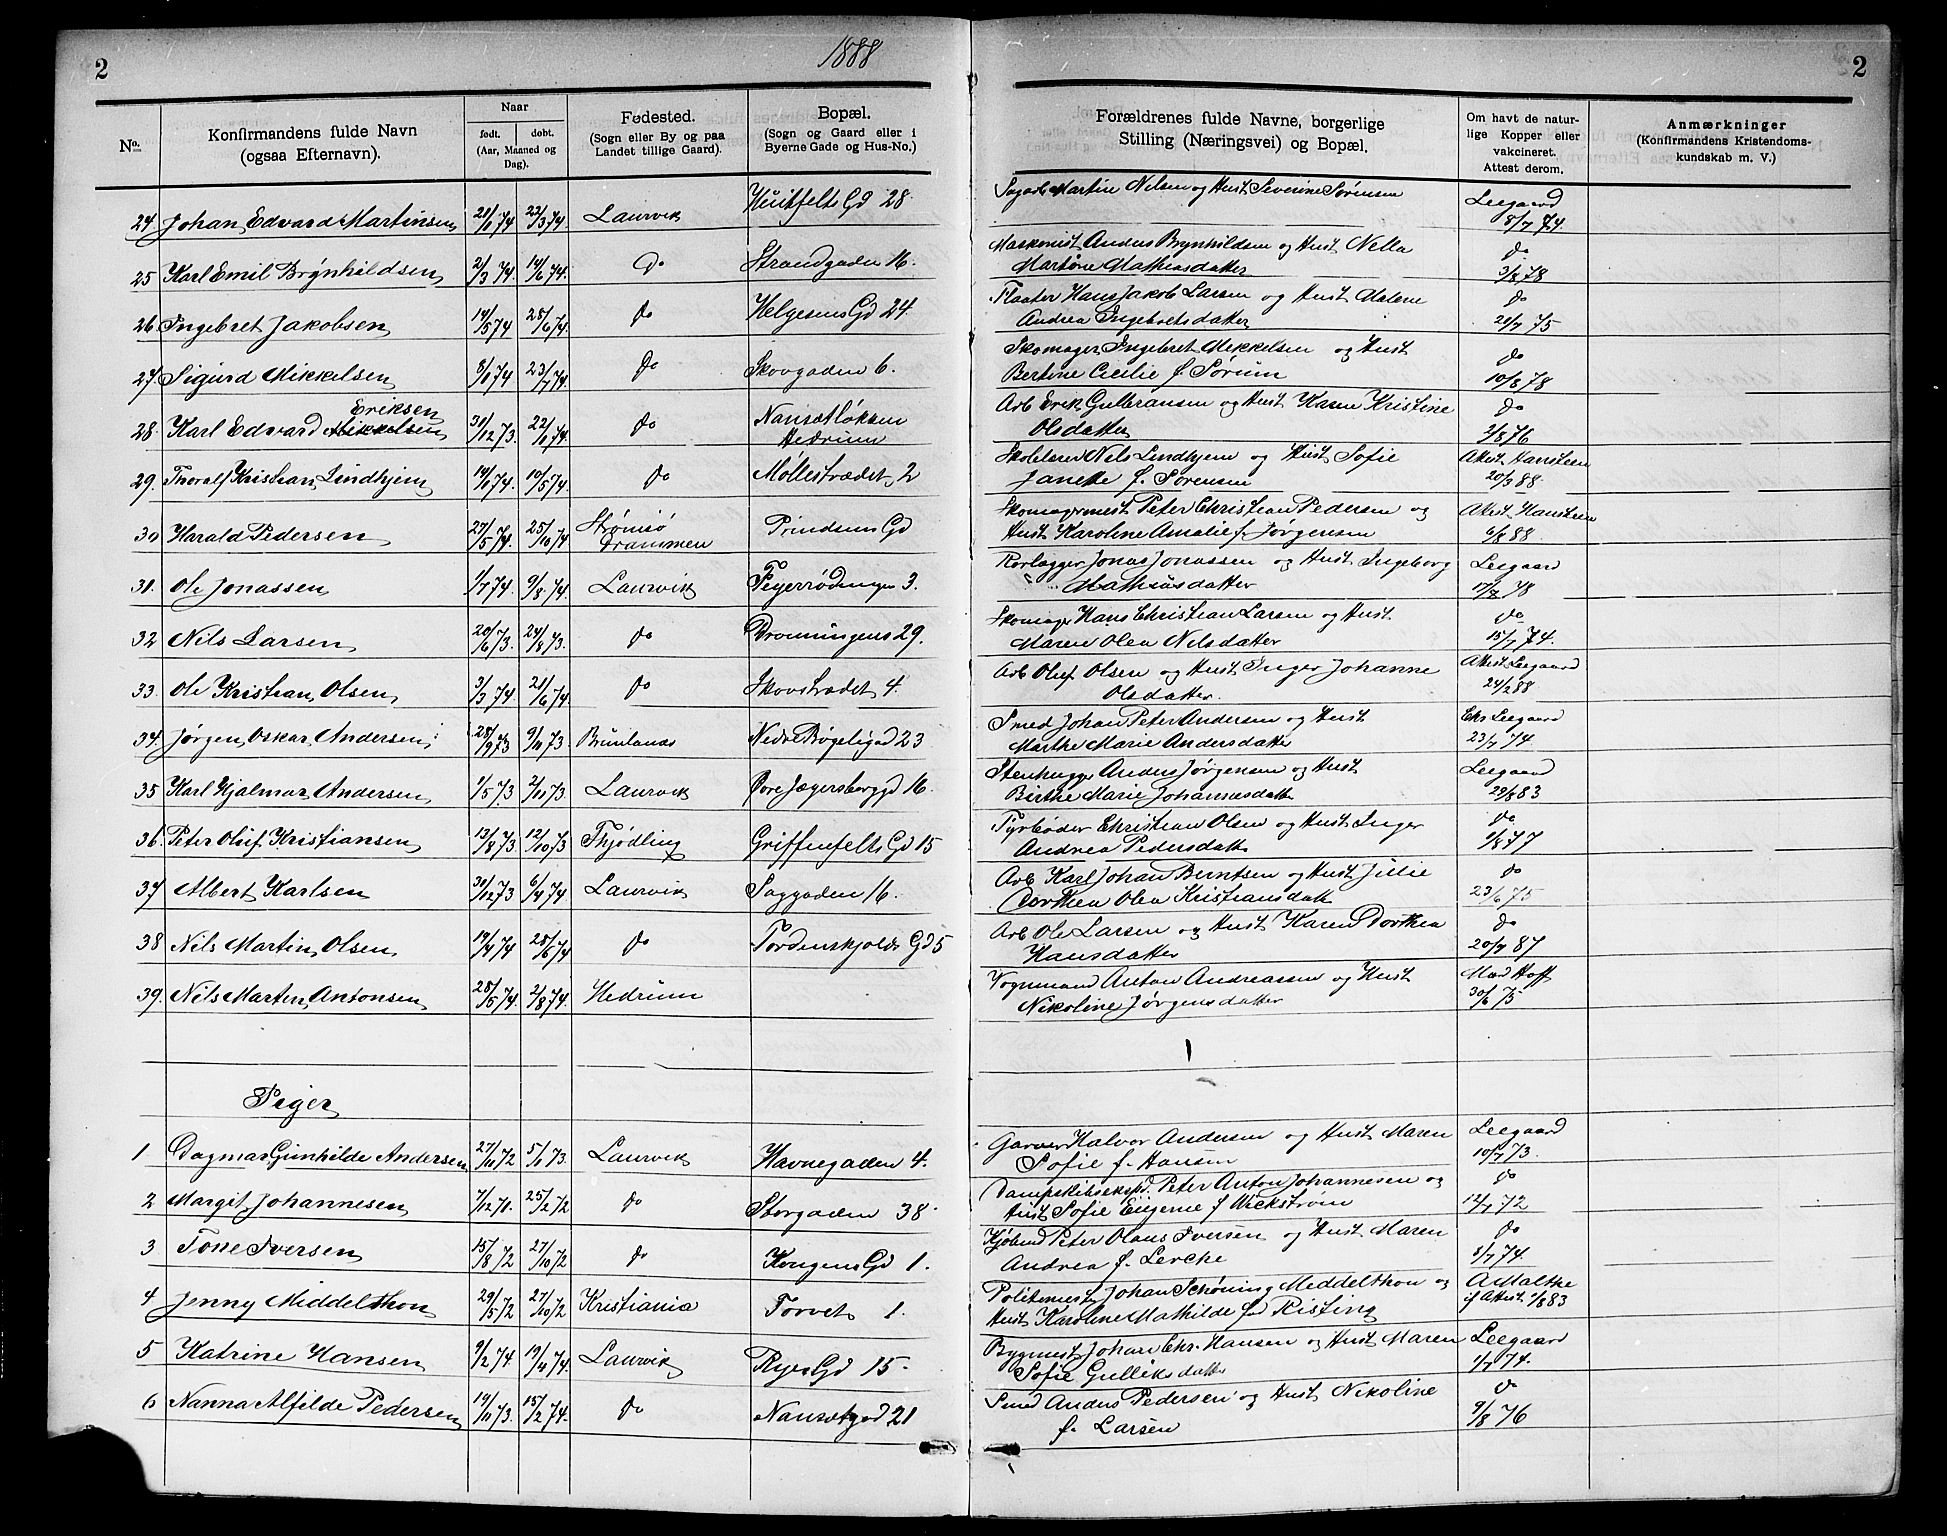 2
1888
2
No.
Konfirmandens fulde Navn
(ogsaa Efternavn).
Naar
født.
døbt.
(Aar, Maaned og
Dag).
Fødested.
(Sogn eller By og paa
Landet tillige Gaard).
Bopæl.
(Sogn og Gaard eller i
Byerne Gade og Hus-No.)
Forældrenes fulde Navne, borgerlige
Stilling (Næringsvei) og Bopæl.
Om havt de natur-
lige Kopper eller
vakcineret.
Attest derom.
Anmærkninger
(Konfirmandens Kristendoms-
kundskab m. V.)
24 Johan Edvard Martinsen 21/1 74 22/3 74 Laurvik Huitfelts Gd 28 Sagarb Martin Nilsen og Hust Severine Sørensen Leegaard 8/7 74
25 Karl Emil Brynhildsen 2/3 74 14/6 74. Do Strandgaden 16. Maskenist Anders Brynhildsen og Hust Nella
Martine Mathiasdatter do 3/8 78
26 Ingebret Jakobsen 14/5 74 28/6 74 Do Helgesens Gd 24 Flaater Hans Jakob Larsen og Hust Malene
Andrea Ingebretsdatter do 21/7 75
27. Sigurd Mikkelsen 8/1 74 23/7 74. Do Skovgaden 6. Skomager Ingebret Mikkelsen og Hust
Bertine Cecilie f. Sørum do 10/8 78
28. Karl Edvard Mikkelsen Eriksen 31/12 73. 22/1 74. Do Nansetløkken
Hedrum Arb Erik Gulbransen og Hust Karen Kristine
Olsdatter do 2/8 76
29. Thoralf Kristian Lindhjem 14/1 74. 10/5 74. Do Møllestrædet 2 Skolelærer Nils Lindhjem og Hust Sofie
Janette f. Sørensen Attest Hansteen 20/3 88.
30 Harald Pedersen 27/5 74. 25/10 74 Strømsø
Drammen Prindsens Gd Skomagermest Peter Christian Pedersen og
Hust Karoline Amalie f. Jørgensen Attest Hansteen 6/8 88.
31. Ole Jonassen 1/7 74. 9/8 74 Laurvik Fejerrødningen 3. Rorlægger Jonas Jonassen og Hust Ingeborg
Mathiasdatter Leegaard 17/8 78
32 Nils Larsen 20/6 73. 24/8 73. Do Dronningens 29. Skomager Hans Christian Larsen og Hust
Maren Olea Nilsdatter do 15/7 74.
33. Ole Kristian Olsen 3/3 74 21/6 74. Do Skovstrædet 4. Arb Oluf Olsen og Hust Inger Johanne
Olsdatter. Attest Leegaard 24/2 88
34. Jørgen Oskar Andersen 28/9 73 9/11 73. Brunlanæs Nedre Bøgeligad 23 Smed Johan Peter Andersen og Hust
Marthe Marie Andersdatter Chr Leegaard 23/7 74.
35 Karl Hjalmar Andersen 1/5 73 2/11 73 Laurvik Øvre Jægersborggd 16. Stenhugger Anders Jørgensen og Hust
Birthe Marie Johannesdatter Leegaard 29/8 83
36. Peter Oluf Kristiansen 13/8 73 12/10 73 Thjødling Griffenfelts Gd 15 Fyrbøder Christian Olsen og Hust Inger
Andrea Pedersdatter do 1/8 77
37 Albert Karlsen 31/12 73 6/4 74 Laurvik Saggaden 16. Arb Karl Johan Berntsen og Hust Julie
Dorthea Olea Kristiansdatter do 23/6 75
38 Nils Martin Olsen 19/4 74 28/6 74 Do Tordenskjolds Gd 5 Arb Ole Larsen og Hust Karen Dorthea
Hansdatter do 20/7 87
39. Nils Marten Antonsen 28/5 74. 2/8 74. Hedrum Vognmand Anton Andreassen og Hust
Nikoline Jørgensdatter Mad Hoff 30/6 75
Piger
1 Dagmar Gunhilde Andersen 27/10 72 5/1 73. Laurvik Havnegaden 4. Garver Halvor Andersen og Hust Maren
Sofie f. Hansen Leegaard 10/7 73.
2 Margit Johannesen 7/12 71. 25/2 72 Do Storgaden 38. Dampskibseksped. Peter Anton Johannesen og
Hust Sofie Eugenie f Wickstrøm do 12/7 72
3 Tone Iversen 15/8 72 27/10 72 Do Kongens Gd 1. Kjøbmd Peter Olaus Iversen og Hust Maren
Andrea f. Lerche do 8/7 74.
4 Jenny Middelthon 29/5 72 27/10 72 Kristiania Torvet 1. Politimest Johan Schøning Middelthon og
Hust Karoline Mathilde fød Risting A Malthe
if Attest 1/8 83
5 Katrine Hansen 9/2 74. 19/4 74 Laurvik Ryes Gd 15. Bygmest Johan Chr. Hansen og Hust Maren
Sofie Gulliksdatter Leegaard 1/7 74.
6 Nanna Alfilde Pedersen 14/11 73. 15/2 74. Do Nansetgd 21 Smed Anders Pedersen og Hust Nikoline
f. Larsen do 9/8 76